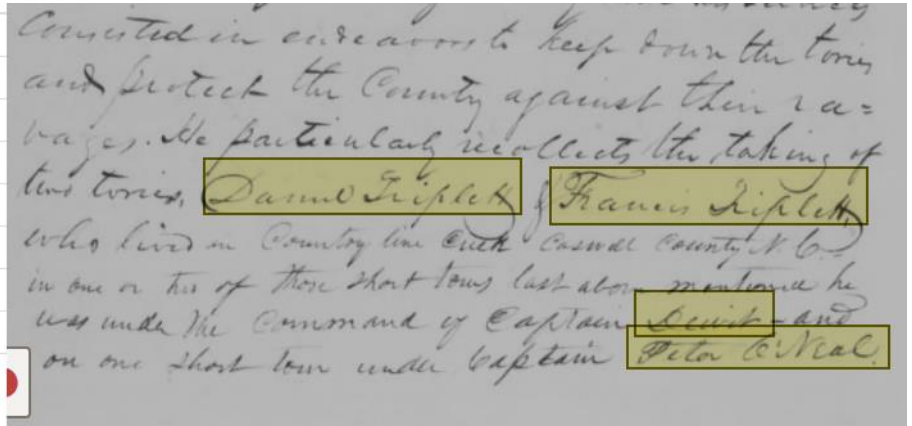 Consisted in endeavors to keep down the tories
and protect the County against their ra=
vages. He particularly recollects the taking of
two tories, Daniel Triplett & Francis Triplett,
who lived on Country line Creek Caswell County N. C.
in one or two of those short tours last above mentioned he
was under the Command of Captain Dewit - and
on one short tour under Captain Peter O'Neal.